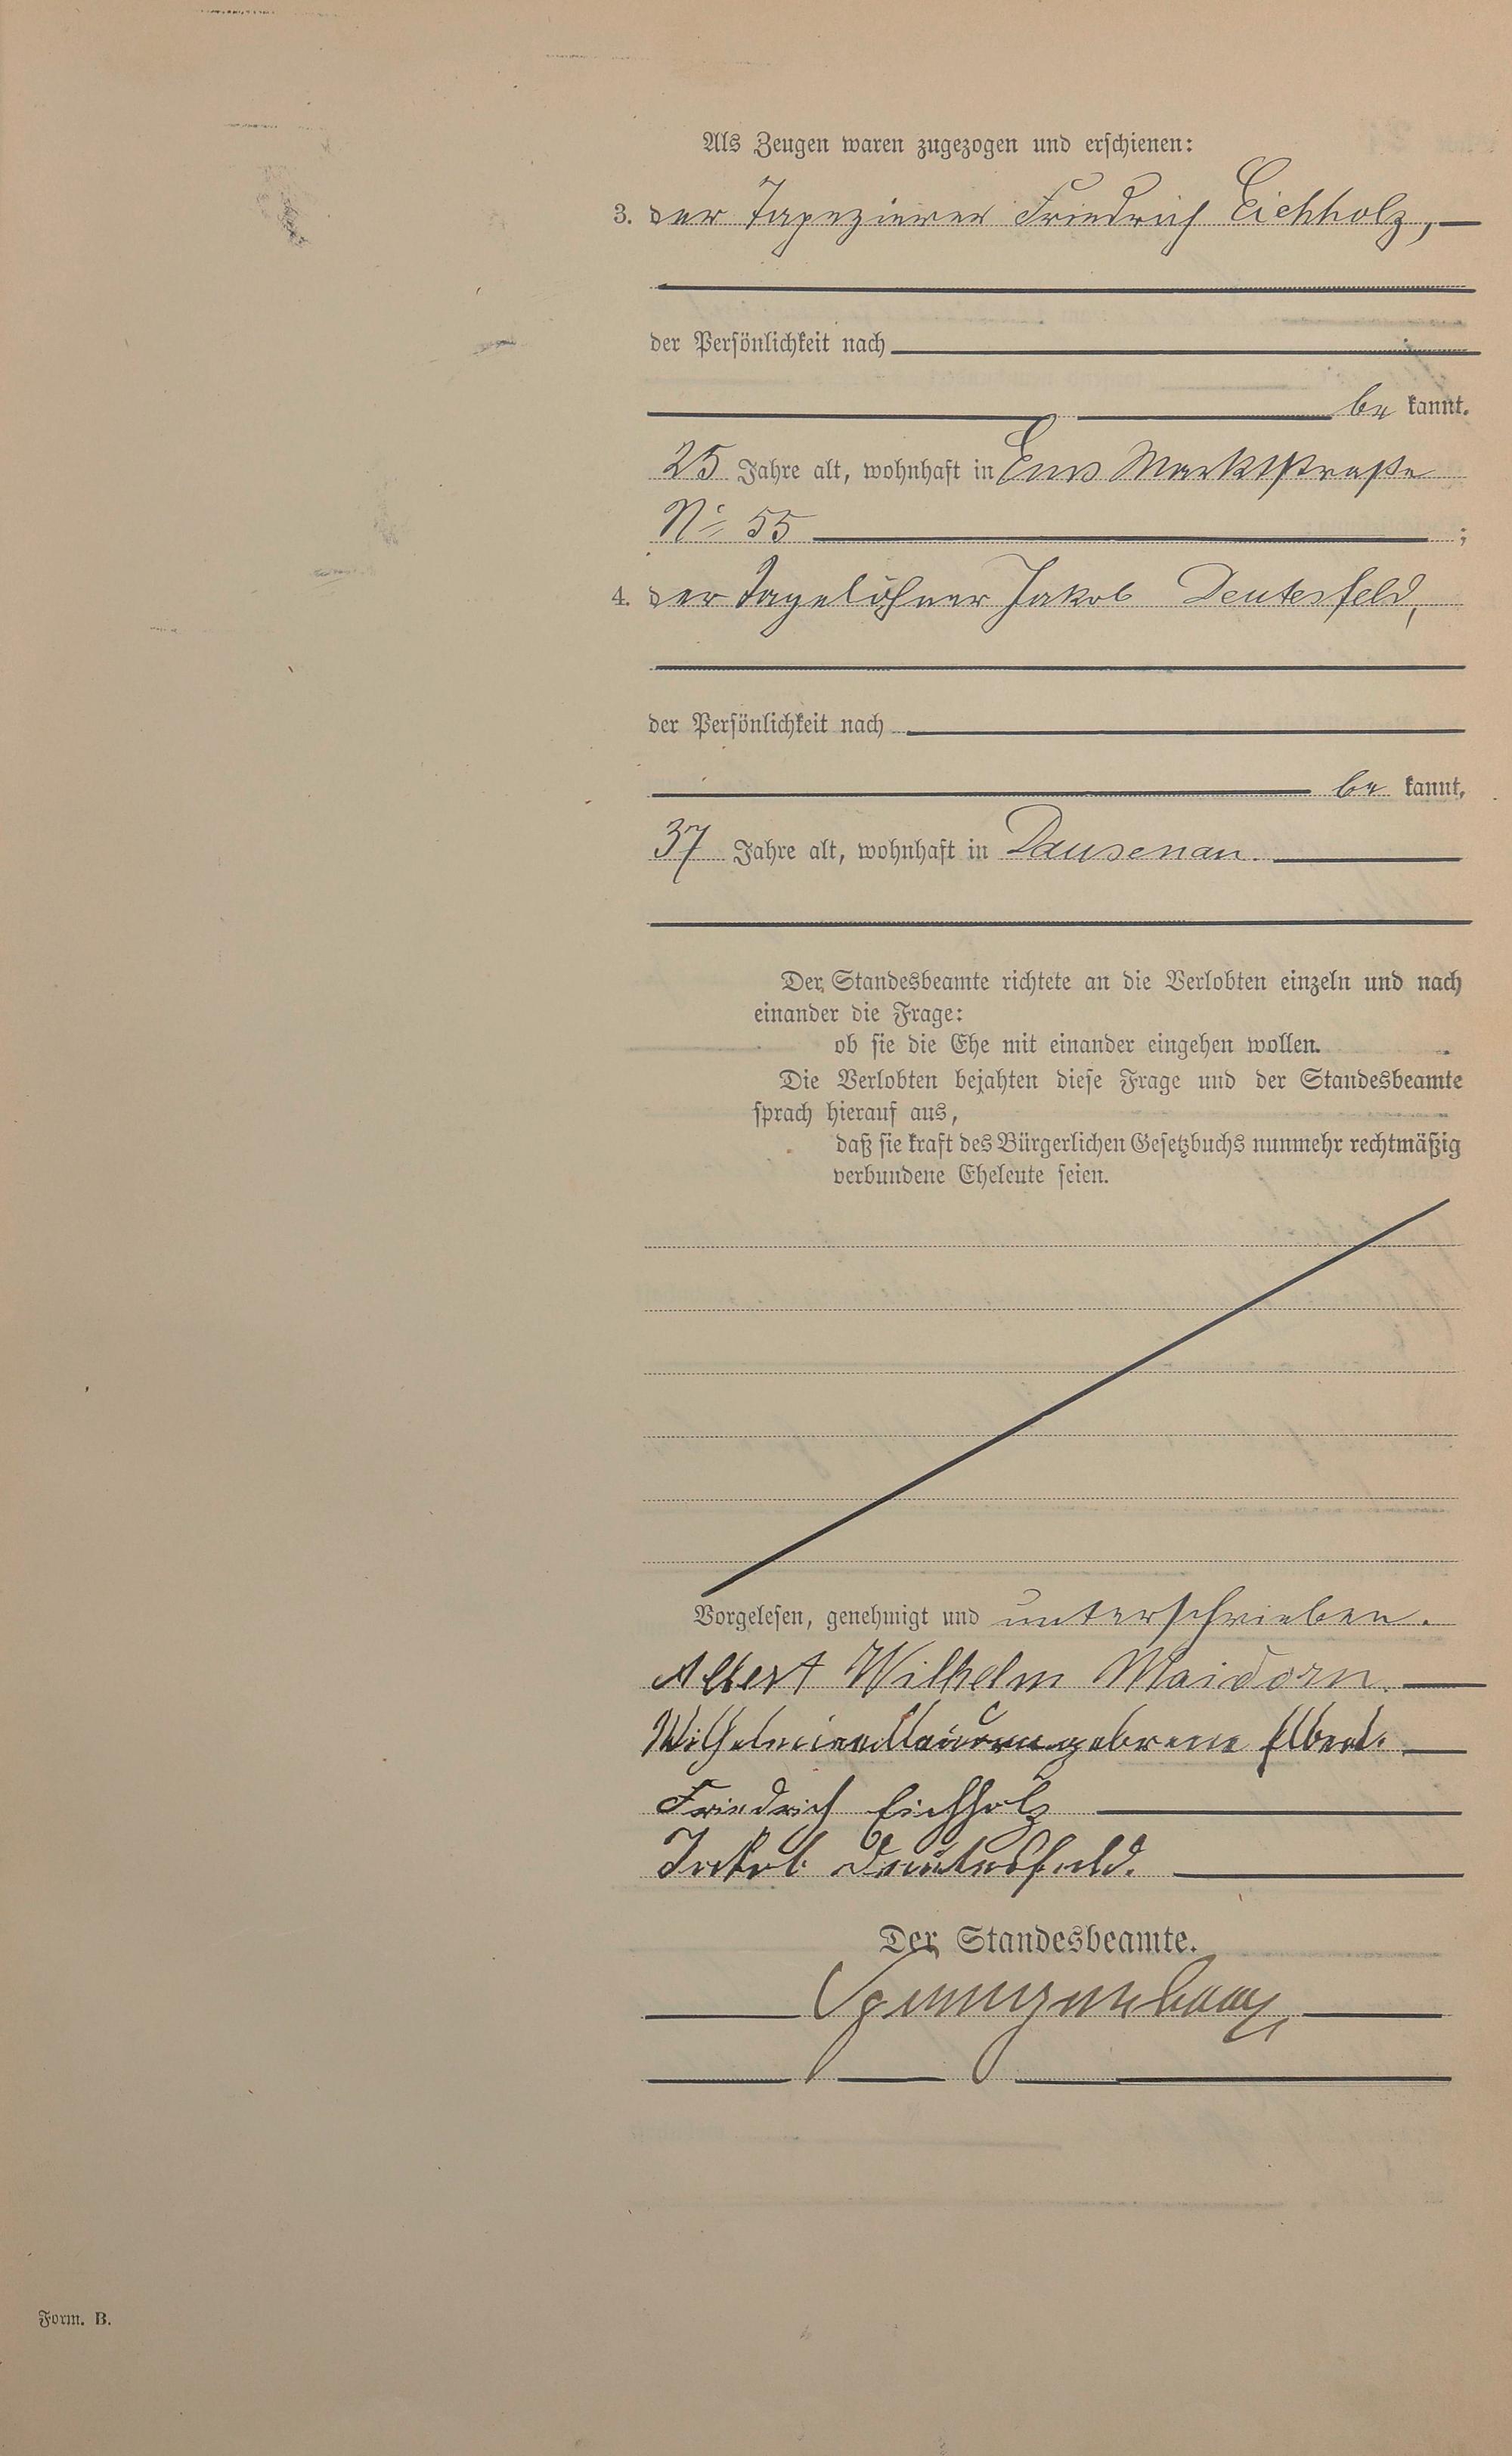 Als Zeugen waren zugezogen und erschienen:
3. der Tapezierer Friedrich Eichholz,
der Persönlichkeit nach
be kannt.
25 Jahre alt, wohnhaft in Ems Marktstraße
No 55 ;
4. der Tagelöhner Jakob Deutesfeld,
der Persönlichkeit nach
be kannt.
37 Jahre alt, wohnhaft in Dausenau.
Der Standesbeamte richtete an die Verlobten einzeln und nach
einander die Frage:
ob sie die Ehe mit einander eingehen wollen.
Die Verlobten bejahten diese Frage und der Standesbeamte
sprach hierauf aus,
daß sie kraft des Bürgerlichen Gesetzbuchs nunmehr rechtmäßig
verbundene Eheleute seien.
Vorgelesen, genehmigt und unterschrieben.
Albert Wilhelm Maidorn.
Wilhelmine Maidorn gebrene Elbert.
Friedrich Eichholz
Jakob Deutesfeld.
Der Standesbeamte.
Form. B.